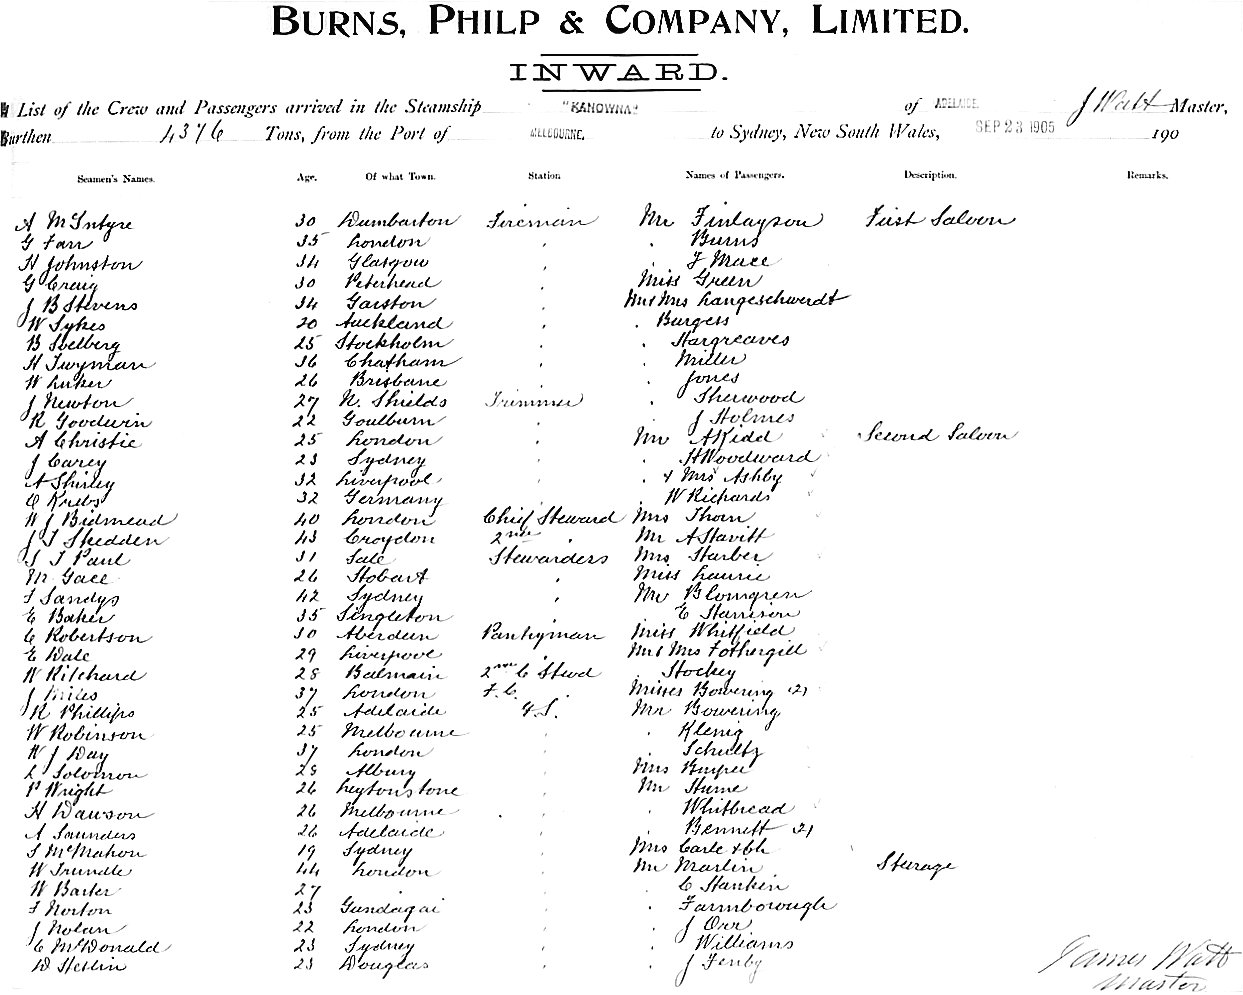 BURNS, PHILP & COMPANY, LIMITED.
INWARD.
List of the Crew and Passengers arrived in the Steamship "KANOWNA" of ADELAIDE. J Watt Master,
Burthen 4376 Tons, from the Port of MELBOURNE. to Sydney, New South Wales, SEP 23 1905 190
Seamen's Names. Age. Of what Town. Station Names of Passengers. Description. Remarks.
A McIntyre 30 Dumbarton Fireman Mr Finlayson First Saloon
G Farr 35 London " " Burns
H Johnston 34 Glasgow " " J Mace
G Craig 30 Peterhead " Miss Green
J B Stevens 34 Garston " Mr & Mrs Langeschwerdt
W Sykes 20 Auckland " " Burgess
B Solberg 25 Stockholm " " Hargreaves
H Twyman 36 Chatham " " Miller
W Luker 26 Brisbane " " Jones
J Newton 27 N. Shields Trimmer " Sherwood
R Goodwin 22 Goulburn " " J Holmes
A Christie 25 London " Mr A Kidd Second Saloon
J Carey 23 Sydney " " H Woodward
A Shirley 32 Liverpool " " & Mrs Ashby
C Krebs 32 Germany " " W Richards
W J Bidmead 40 London Chief Steward Mrs Thorn
J T Shedden 43 Croydon 2nd " Mr A Stavitt
S J Paul 31 Sale Stewardess Mrs Starber
M Gace 26 Hobart " Miss Laurie
F Sandys 42 Sydney " Mr Blomgren
E Baker 35 Singleton " E Harrison
C Robertson 30 Aberdeen Pantryman Miss Whitfield
E Dale 29 Liverpool " Mr & Mrs Fothergill
W Ritchard 28 Balmain 2nd C Stwd " Stockey
J Miles 37 London F.C. " Misses Bowering (2)
R Phillips 25 Adelaide G.S. Mr Bowering
W Robinson 25 Melbourne " " Klenig
W J Day 37 London " " Schultz
L Solomon 28 Albury " Mrs
P Wright 26 Leytonstone " Mr Hume
H Dawson 26 Melbourne " " Whitbread
A Saunders 26 Adelaide " " Bennett (2)
S McMahon 19 Sydney " Mrs Carle & Ch
W Trundle 44 London " Mr Martin Steerage
W Barter 27 " " " C Hankin
F Norton 23 Gundagai " " Farmborough
J Nolan 22 London " " J Orr
C McDonald 23 Sydney " " Williams
D Heslin 23 Douglas " " J Fenby
James Watt
Master